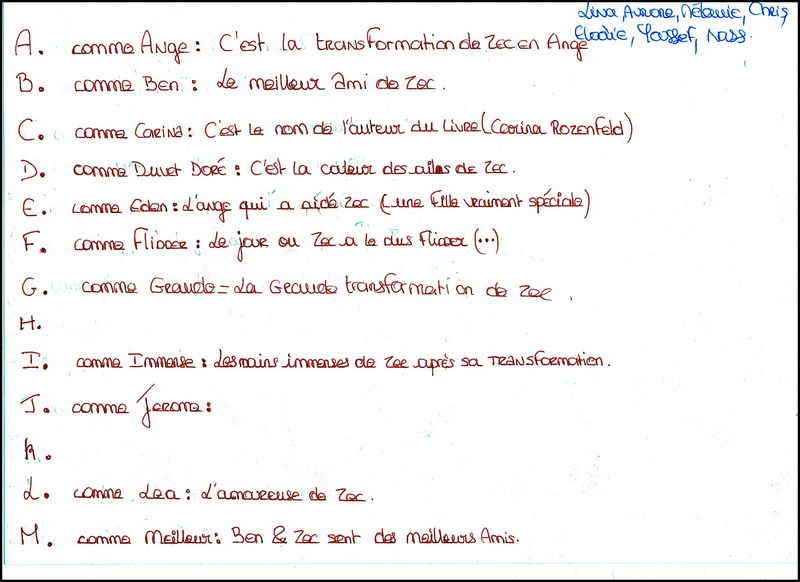 Lina, Aurore, Mélanie, Chris,
Elodie, Youssef, Nass.
A. comme Ange : C'est la transformation de Zec en Ange
B. comme Ben : Le meilleur ami de Zec.
C. comme Carina : C'est le nom de l'auteur du Livre (Carina Rozenfeld)
D. comme Duvet Doré : C'est la couleur des ailes de Zec.
E. comme Eden : L'ange qui a aidé Zec (une fille vraiment spéciale)
F. comme Flipper : Le jour ou Zec a le plus Flipper (...)
G. comme Grande = La Grande transformation de Zec.
H.
I. comme Immense : Les mains immenses de Zec après sa TRANSFORMATION.
J. comme Jerome :
K.
L. comme Lea : L'amoureuse de Zec.
M. comme Meilleur : Ben & Zec sont des meilleurs Amis.